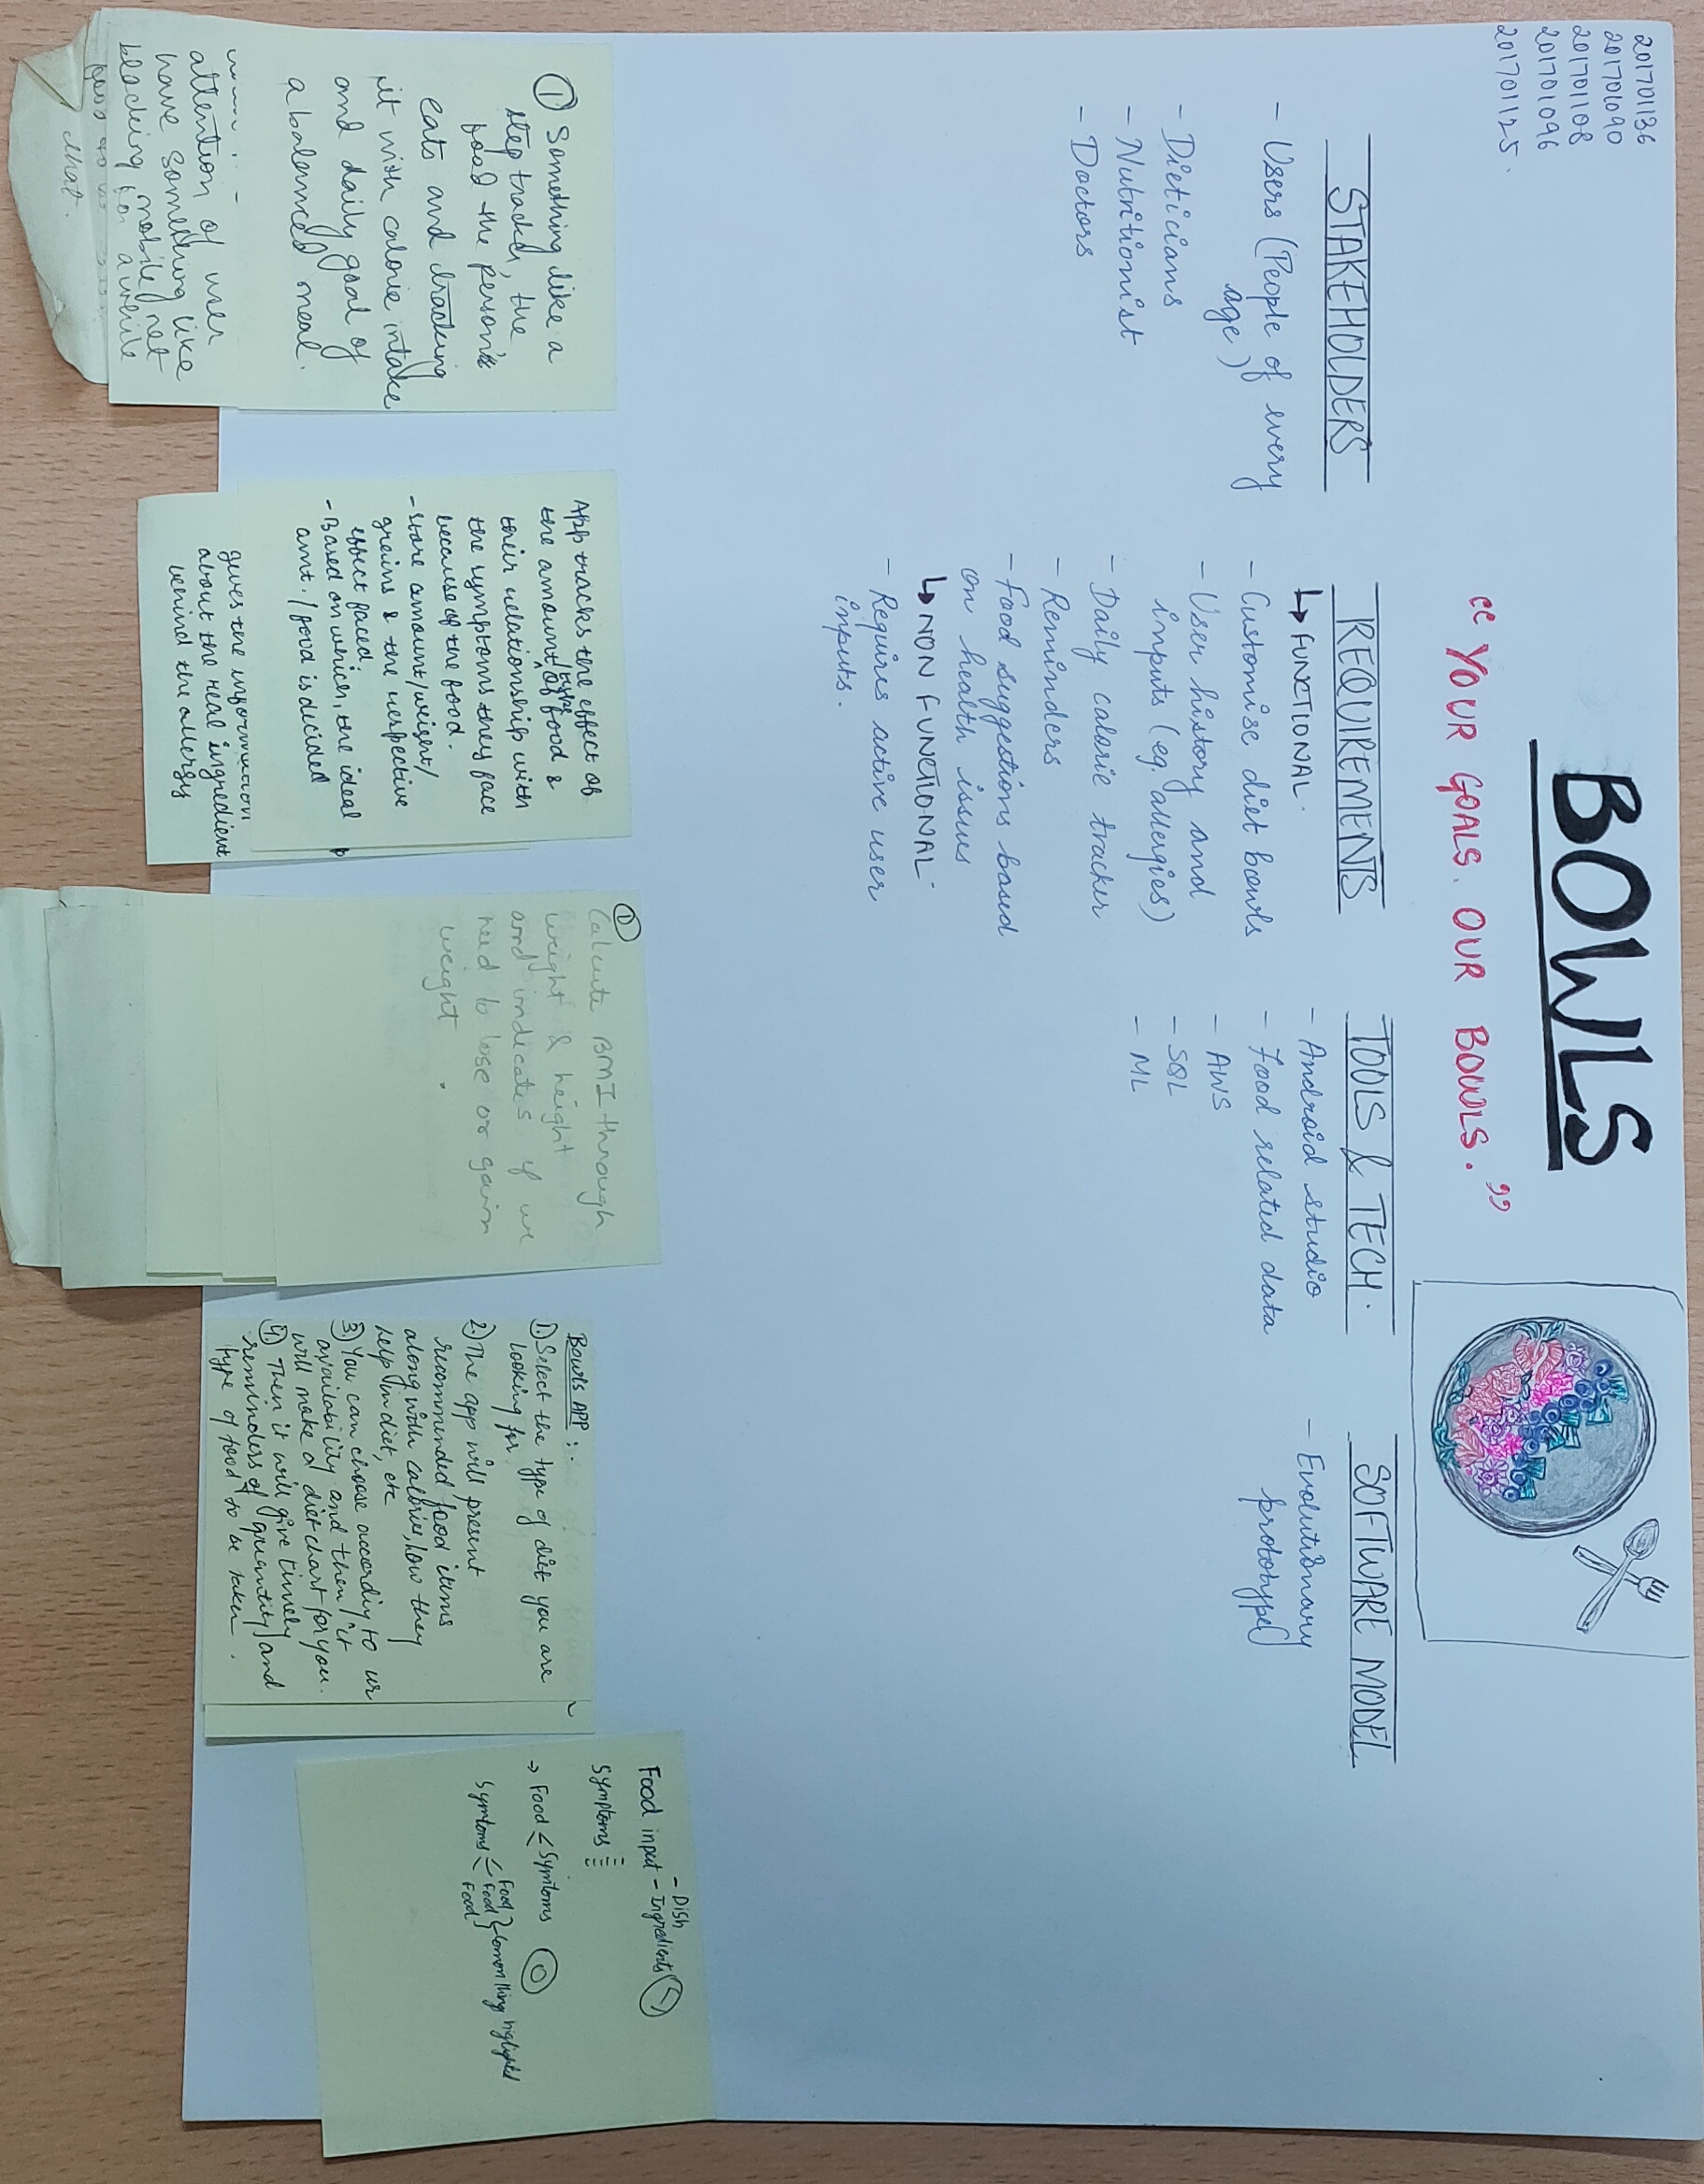 201701136
201701090
201701108
201701096
201701125.
BOWLS
“ YOUR GOALS. OUR BOWLS. ”
STAKEHOLDERS
- Users (People of every
age)
- Dieticians
- Nutritionist
- Doctors
REQUIREMENTS
↳ FUNCTIONAL.
- Customise diet bowls
- User history and
inputs (eg. allergies)
- Daily calorie tracker
- Reminders
- Food suggestions based
on health issues
↳ NON FUNCTIONAL.
- Requires active user
inputs.
TOOLS & TECH.
- Android studio
- Food related data
- AWS
- SQL
- ML
SOFTWARE MODEL
- Evolutionary
prototype
① Something like a
step tracker, the
food the person's
eats and tracking
it with calorie intake
and daily goal of
a balanced meal.
attention of user
have something like
blocking mobile net
for awhile
that.
App tracks the effect of
the amount/type of food &
their relationship with
the symptoms they face
because of the food.
- Store amount/weight/
grains & the respective
effect faced.
- Based on which, the ideal
amt./food is decided
gives the information
about the real ingredient
behind the allergy
①
Calcute BMI through
weight & height
and indicates if we
need to lose or gain
weight.
Bowls APP :
1.) Select the type of diet you are
looking for
2.) The app will present
recommended food items
along with calories, how they
help in diet, etc
3.) You can choose according to ur
availability and then it
will make a diet chart for you.
4.) Then it will give timely
reminders of quantity and
type of food to be taken.
- Dish
Food input - Ingredients
Symptoms
→ Food < Symtoms
Symtoms < Food
Food
Food
} Common thing highlighted